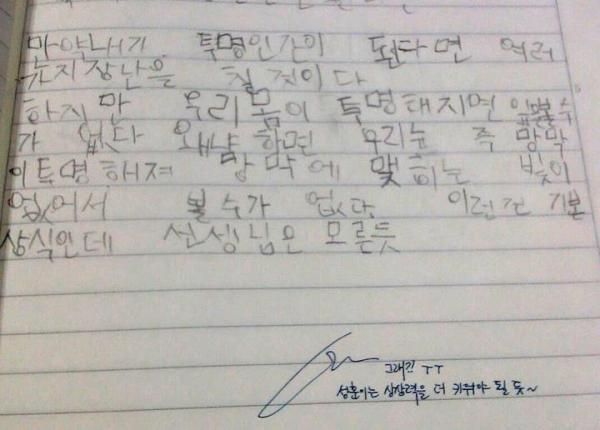 만약내가 투명인간이 된다면 여러
가지장난을 칠것이다
하지만 우리몸이 투명해지면 앞볼수
가 없다 왜냠하면 우리눈 즉 망막
이투명해져 망막에 맺히는 빛이
없어서 볼수가 없다. 이런건 기본
상식인데 선생님은 모른듯
그래긴 ㅜㅜ
성훈이는 상상력을 더 키워야 될 듯~